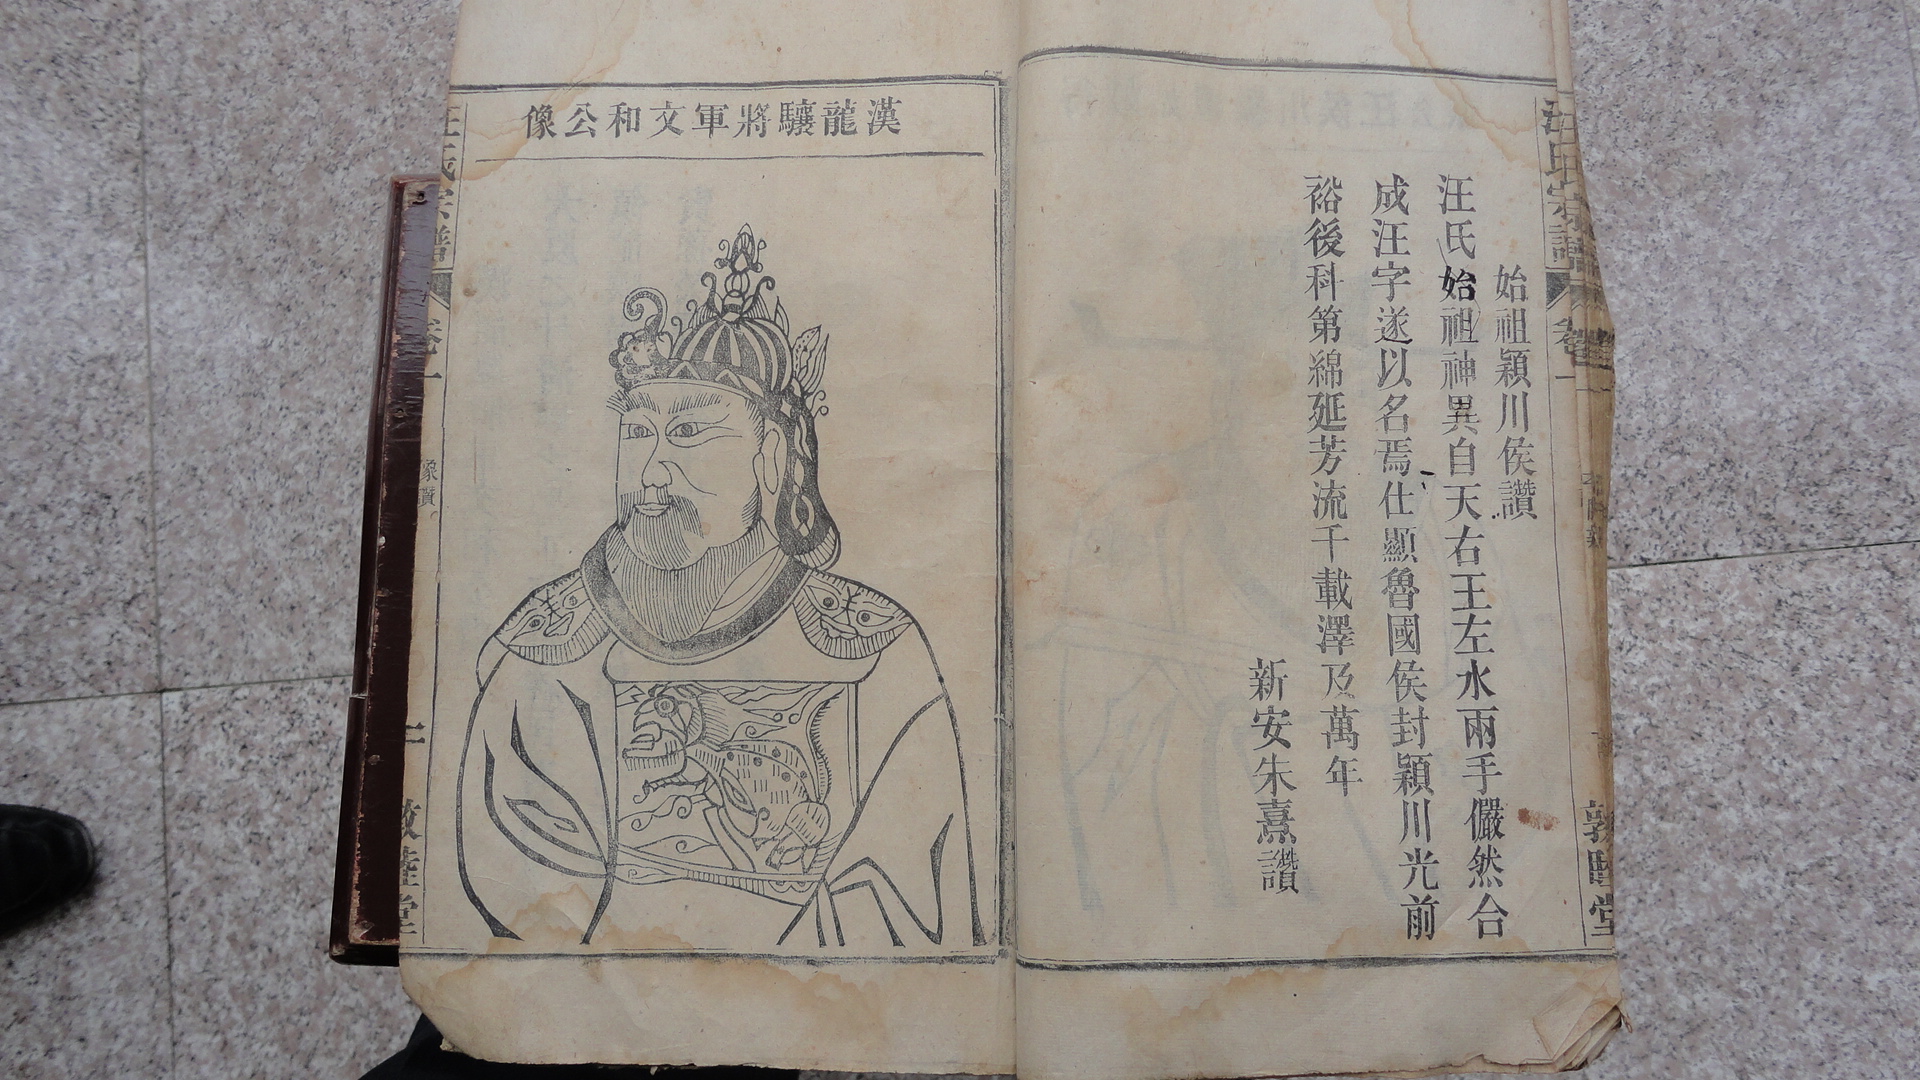 汪氏宗譜
卷一
敦睦堂
始祖潁川侯讚
汪氏始祖神異自天右王左水兩手儼然合
成汪字遂以名焉仕顯魯國侯封潁川光前
裕後科第綿延芳流千載澤及萬年
新安朱熹讚
漢龍驤將軍文和公像
汪氏宗譜
卷一
像讚
一
敦睦堂